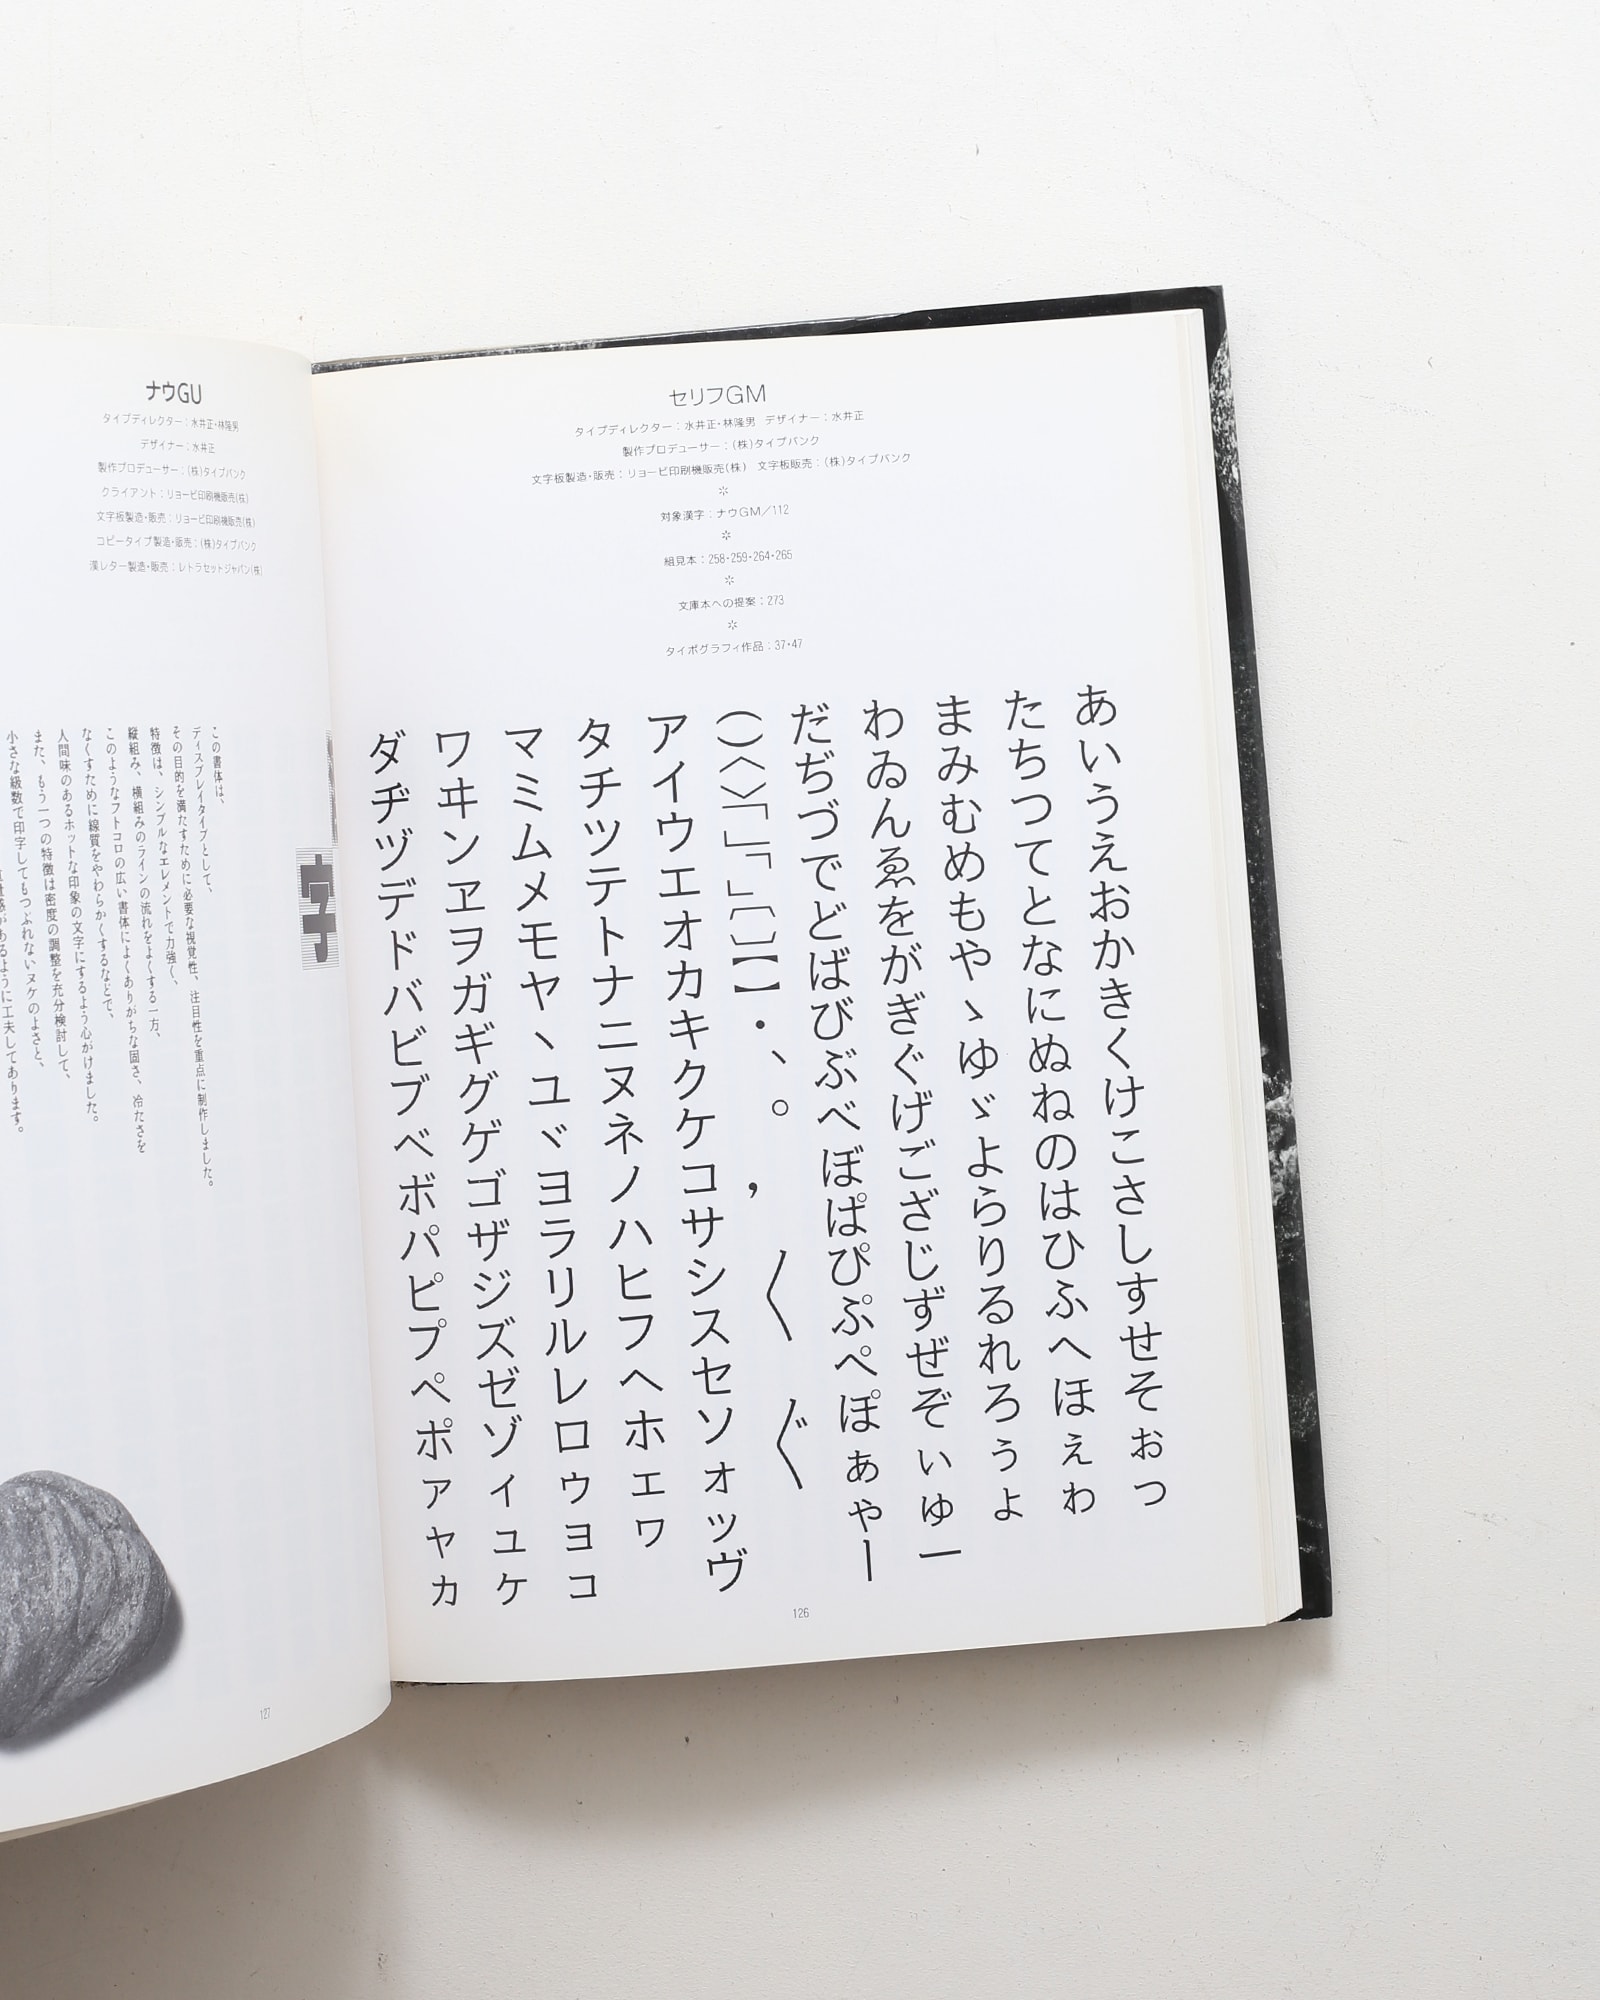 セリフGM
タイプディレクター：水井正・林隆男 デザイナー：水井正
製作プロデューサー：（株）タイプバンク
文字板製造・販売：リョービ印刷機販売（株） 文字板販売：（株）タイプバンク
＊
対象漢字：ナウGM／112
＊
組見本：258・259・264・265
＊
文庫本への提案：273
＊
タイポグラフィ作品：37・47
あいうえおかきくけこさしすせそぉっ
たちつてとなにぬねのはひふへほぇゎ
まみむめもやゝゆゞよらりるれろぅょ
わゐんゑをがぎぐげござじずぜぞぃゅー
だぢづでどばびぶべぼぱぴぷぺぽぁゃー
（）〈〉「」「」〔〕【】・、。，〱〲
アイウエオカキクケコサシスセソォッヴ
タチツテトナニヌネノハヒフヘホェヮ
マミムメモヤヽユヾヨラリルレロゥョコ
ワヰンヱヲガギグゲゴザジズゼゾィュケ
ダヂヅデドバビブベボパピプペポァャカ
126
ナウGU
タイプディレクター：水井正・林隆男
デザイナー：水井正
製作プロデューサー：（株）タイプバンク
クライアント：リョービ印刷機販売（株）
文字板製造・販売：リョービ印刷機販売（株）
コピータイプ製造・販売：（株）タイプバンク
漢レター製造・販売：レトラセットジャパン（株）
字
この書体は、
ディスプレイタイプとして、
その目的を満たすために必要な視覚性、注目性を重点に制作しました。
特徴は、シンプルなエレメントで力強く、
縦組み、横組みのラインの流れをよくする一方、
このようなフトコロの広い書体によくありがちな固さ、冷たさを
なくすために線質をやわらかくするなどで、
人間味のあるホットな印象の文字にするよう心がけました。
また、もう一つの特徴は密度の調整を充分検討して、
小さな級数で印字してもつぶれないヌケのよさと、
があるように工夫してあります。
127